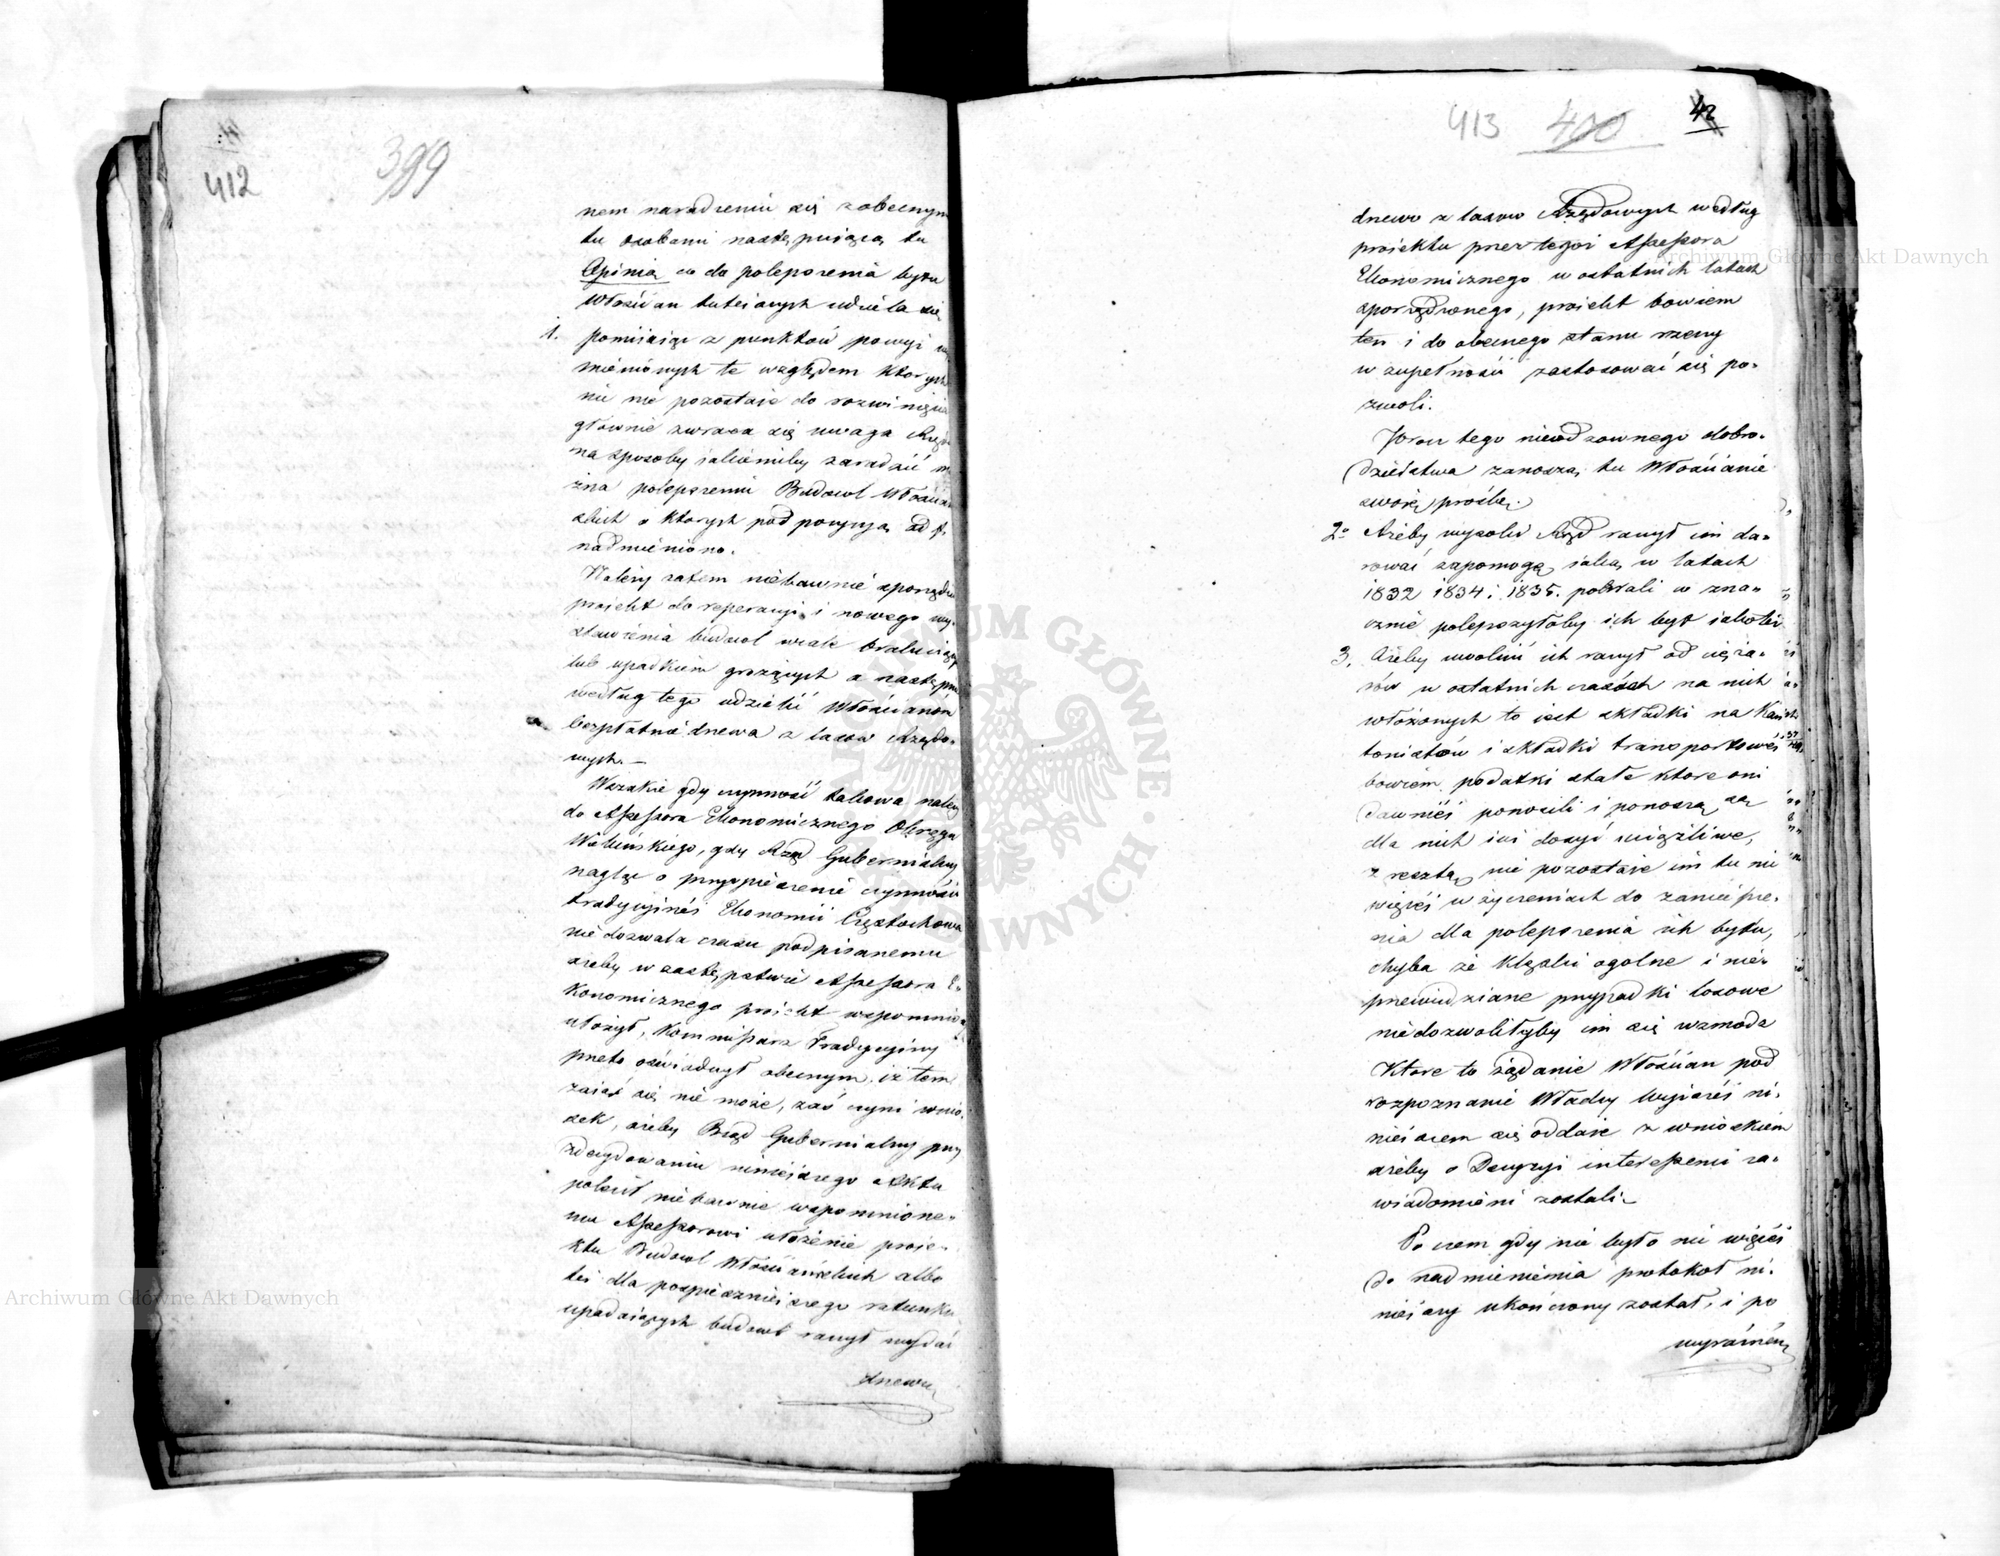 412
399
nem naradzeniu się z obecnym
tu osobami następującą tu
Opinią co do polepszenia bytu
Włościan tuteiszych udziela się
1. pomiiaiąc z punktów powyż wy
mienionych te względem ktorych
nic nie pozostaie do rozwinięcia
głownie zwraca się uwaga Rządu
na sposoby iakiemiby zaradzić mo
żna polepszeniu Budowl Włościań
skich o ktorych pod pozycyą
nadmieniono.
Należy zatem niebawnie sporządzić
proiekt do reperacyi i nowego wy-
stawienia budowl wcale brakuiących
lub upadkiem grożących a następnie
według tego udzielić Włościanom
bezpłatnie drzewa z lasów Rządo-
wych. —
Wszakże gdy czynność takowa należy
do Assessora Ekonomicznego Okręgu
Wieluńskiego, gdy Rząd Gubernialny
nagląc o przyspieszenie czynności
tradycyjnéi Ekonomii Częstochowa
nie dozwala czasu podpisanemu
ażeby w zastępstwie Assessora E-
konomicznego proiekt wspomniony
ułożył, Kommissarz Tradycyiny
przeto oświadczył obecnym iż tem
zaiąć się nie może, zaś czyni wnio-
sek, ażeby Rząd Gubernialny przy
zdecydowaniu ninieiszego Aktu
polecił niebawnie wspomnione-
mu Assessorowi ułożenie proie-
ktu Budowl Włościańskich albo
téż dla pospieszniéiszego ratunku
upadaiących budowl raczył wydać
drzewa
413 400 42
drzewo z lasów Rządowych według
proiektu przez tegoż Assessora
Ekonomicznego w ostatnich latach
sporządzonego, proiekt bowiem
ten i do obecnego stanu rzeczy
w zupełności zastosować się po-
zwoli.
Prócz tego nieodzownego dobro-
dzieistwa zanoszą tu Włościanie
swoię prośbę.
2o Ażeby wysoki Rząd raczył im da-
rować zapomogę iaką w latach
1832 1834 i 1835. pobrali co zna-
cznie polepszyłoby ich byt iakotéż
3. Ażeby uwolnić ich raczył od cięża-
rów w ostatnich czasach na nich
włożonych to iest składki na Kan-
tonistów i składki transportowéi
bowiem podatki stałe ktore oni
dawniéi ponosili i ponoszą są
dla nich iuż dosyć uciążliwe,
z resztą nie pozostaie im tu nic
więcéi w życzeniach do zamieszcze-
nia dla polepszenia ich bytu,
chyba że klęski ogolne i nie-
przewidziane przypadki losowe
niedozwoliłyby im się wzmodz
Ktore to żądanie Włościan pod
rozpoznanie Władzy Wyższéi ni-
nieiszem się oddaie z wnioskiem
ażeby o Decyzyi interesseni za-
wiadomieni zostali.
Po czem gdy nie było nic więcéi
do nadmienienia protokoł ni-
nieiszy ukończony został, i po
wyraźném